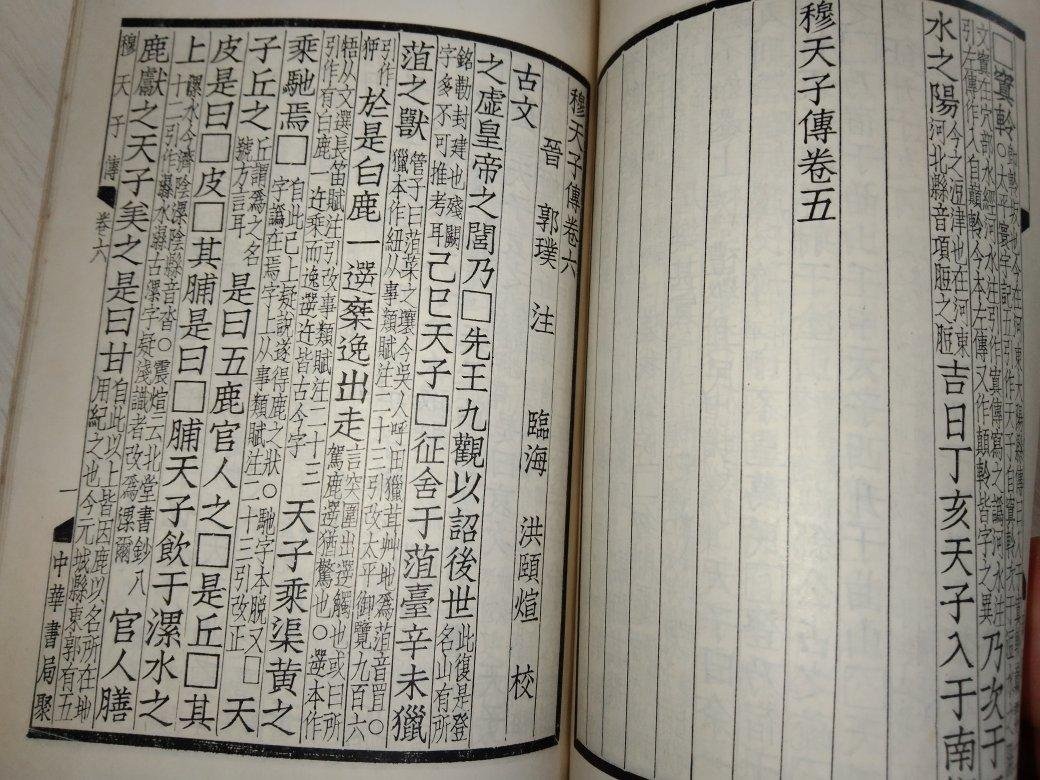 文竇在穴部水經河水注引作竇傳寫之譌河水注
引左傳作入自顛軨今本左傳又作顛軨皆字之異
乃次于
水之陽
今之洹津也在河東
河北縣音項脰之脰
吉日丁亥天子入于南
穆天子傳卷五
穆天子傳卷六
古文
晉 郭璞 注 臨海 洪頤煊 校
之虛皇帝之閭乃□先王九觀以詔後世
此復是登
名山有所
銘勒封建也殘闕
字多不可推考耳
己巳天子□征舍于菹臺辛未獵
菹之獸
管子曰菹菜之壤今吳人呼田獵茸艸地爲菹音罝○
獵本作紐从事類賦注二十三引改太平御覽九百六
引作
狎
於是白鹿一遻椉逸出走
言突圍出遻觸也或曰所
駕鹿遻猶驚也○遻本作
牾从文選長笛賦注引改事類賦注二十三
引作有白鹿一迕乘而逸遻迕皆古今字
天子乘渠黃之
乘馳焉□
自此已上疑說逐得鹿之狀○馳字本脫又□
字譌在焉字上从事類賦注二十三引改正
天
子丘之
丘謂爲之名
號方言耳
是曰五鹿官人之□是丘□其
皮是曰□皮□其脯是曰□脯天子飲于漯水之
上
漯水今濟陰漯陰縣音沓○震煊云北堂書鈔八
十二引作㶟水㶟古漯字疑淺識者改爲漯爾
官人膳
鹿獻之天子美之是曰甘
自此以上皆因鹿以名所在地
用紀之也今元城縣東郭有五
穆天子傳 卷六 一 中華書局聚